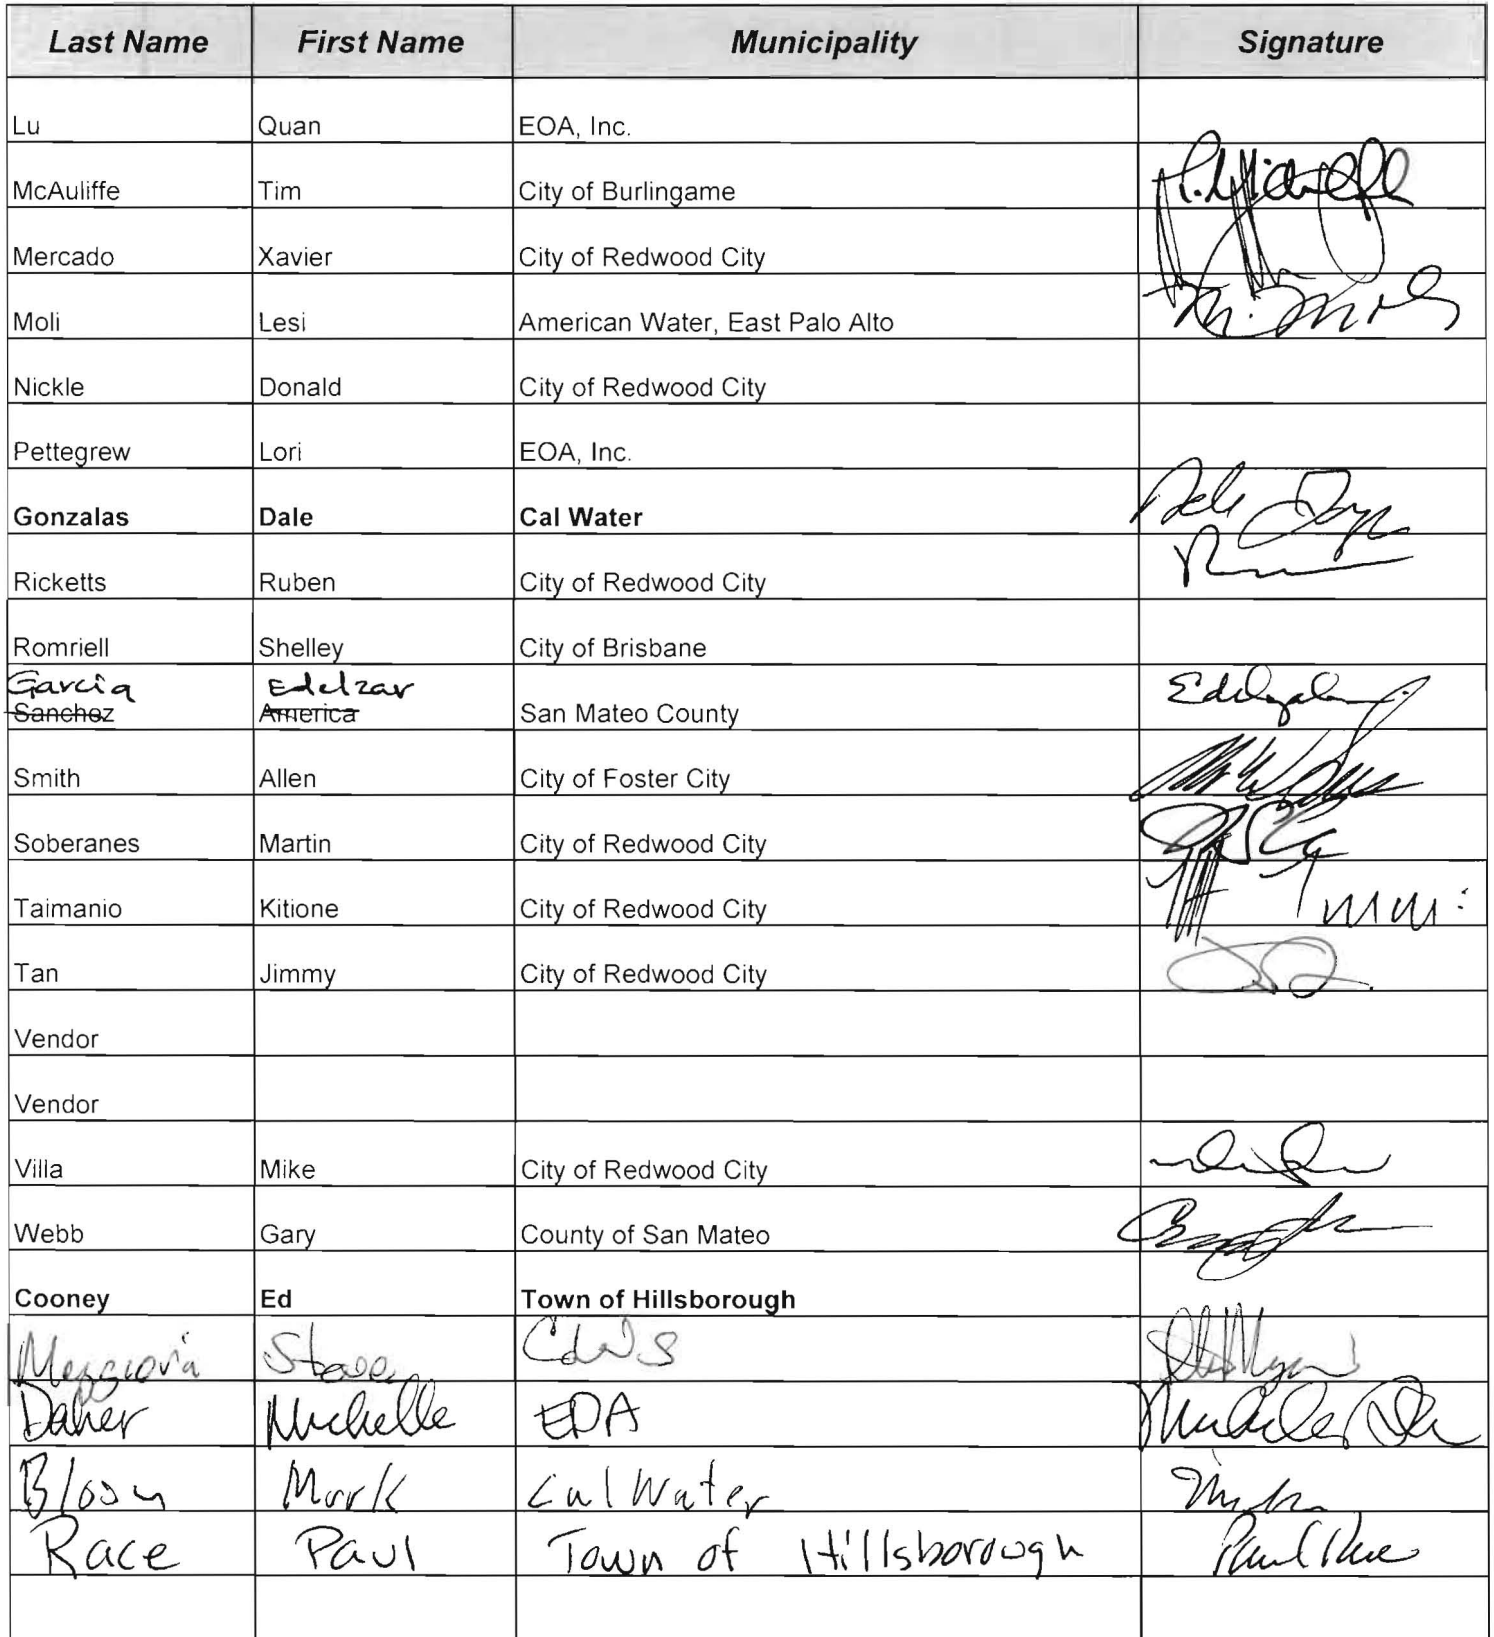 Last Name First Name Municipality Signature
Lu Quan EOA, Inc.
McAuliffe Tim City of Burlingame
Mercado Xavier City of Redwood City
Moli Lesi American Water, East Palo Alto
Nickle Donald City of Redwood City
Pettegrew Lori EOA, Inc.
Gonzalas Dale Cal Water
Ricketts Ruben City of Redwood City
Romriell Shelley City of Brisbane
Garcia Edelzar
Sanchez America San Mateo County
Smith Allen City of Foster City
Soberanes Martin City of Redwood City
Taimanio Kitione City of Redwood City
Tan Jimmy City of Redwood City
Vendor
Vendor
Villa Mike City of Redwood City
Webb Gary County of San Mateo
Cooney Ed Town of Hillsborough
Steve
Daher Michelle Michelle
Mark Cal Water
Race Paul Town of Hillsborough Paul Race